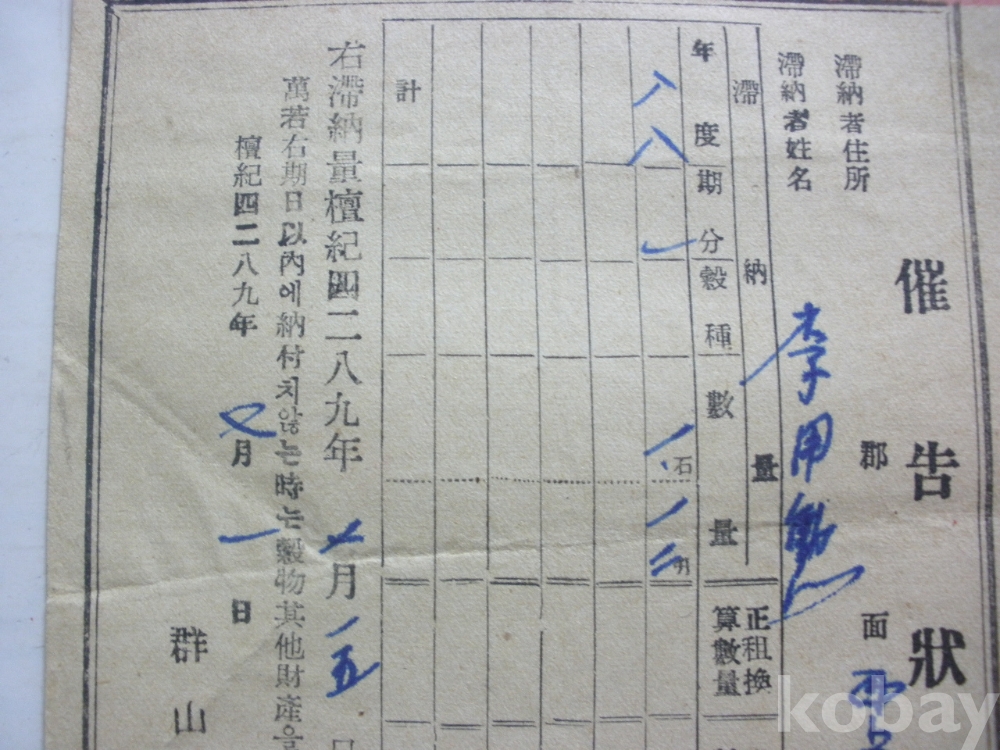 催告狀
滯納者住所 郡 面
滯納者姓名 李用
滯納量
年度 期分 穀種 數量 正租換算數量
八八 一 石
計
右滯納量檀紀四二八九年 月 一五
萬若右期日以內에納付치않는時는穀物其他財產을
檀紀四二八九年 月 一 日
群山
kobay